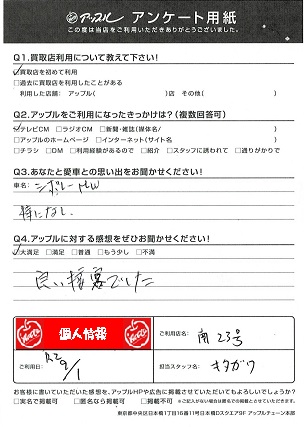 アップル アンケート用紙
この度は当店をご利用いただきありがとうございました。
Q1.買取店利用について教えて下さい!
☑買取を初めて利用
□過去に買取店を利用したことがある
利用した店舗: アップル( )店 その他( )
Q2.アップルをご利用になったきっかけは?(複数回答可)
☑テレビCM □ラジオCM □新聞・雑誌(媒体名/ )
□アップルのホームページ □インターネット(サイト名 )
□チラシ □DM □利用経験があるので □紹介 □スタッフに誘われて □通りがかりで
Q3.あなたと愛車との思い出をお聞かせください!
車名: シボレーMW
特になし.
Q4.アップルに対する感想をぜひお聞かせください!
☑大満足 □満足 □普通 □もう少し □不満
良い接客でした
個人情報
ご利用店名: 南23号
ご利用日: R2 9/1
担当スタッフ名: キタガワ
お客様に書いていただいた感想を、アップルHPや広告に掲載させていただいてもよろしいでしょうか?
□実名で掲載可 □匿名なら掲載可 □掲載不可
東京都中央区日本橋1丁目16番11号日本橋Dスクエア9F アップルチェーン本部